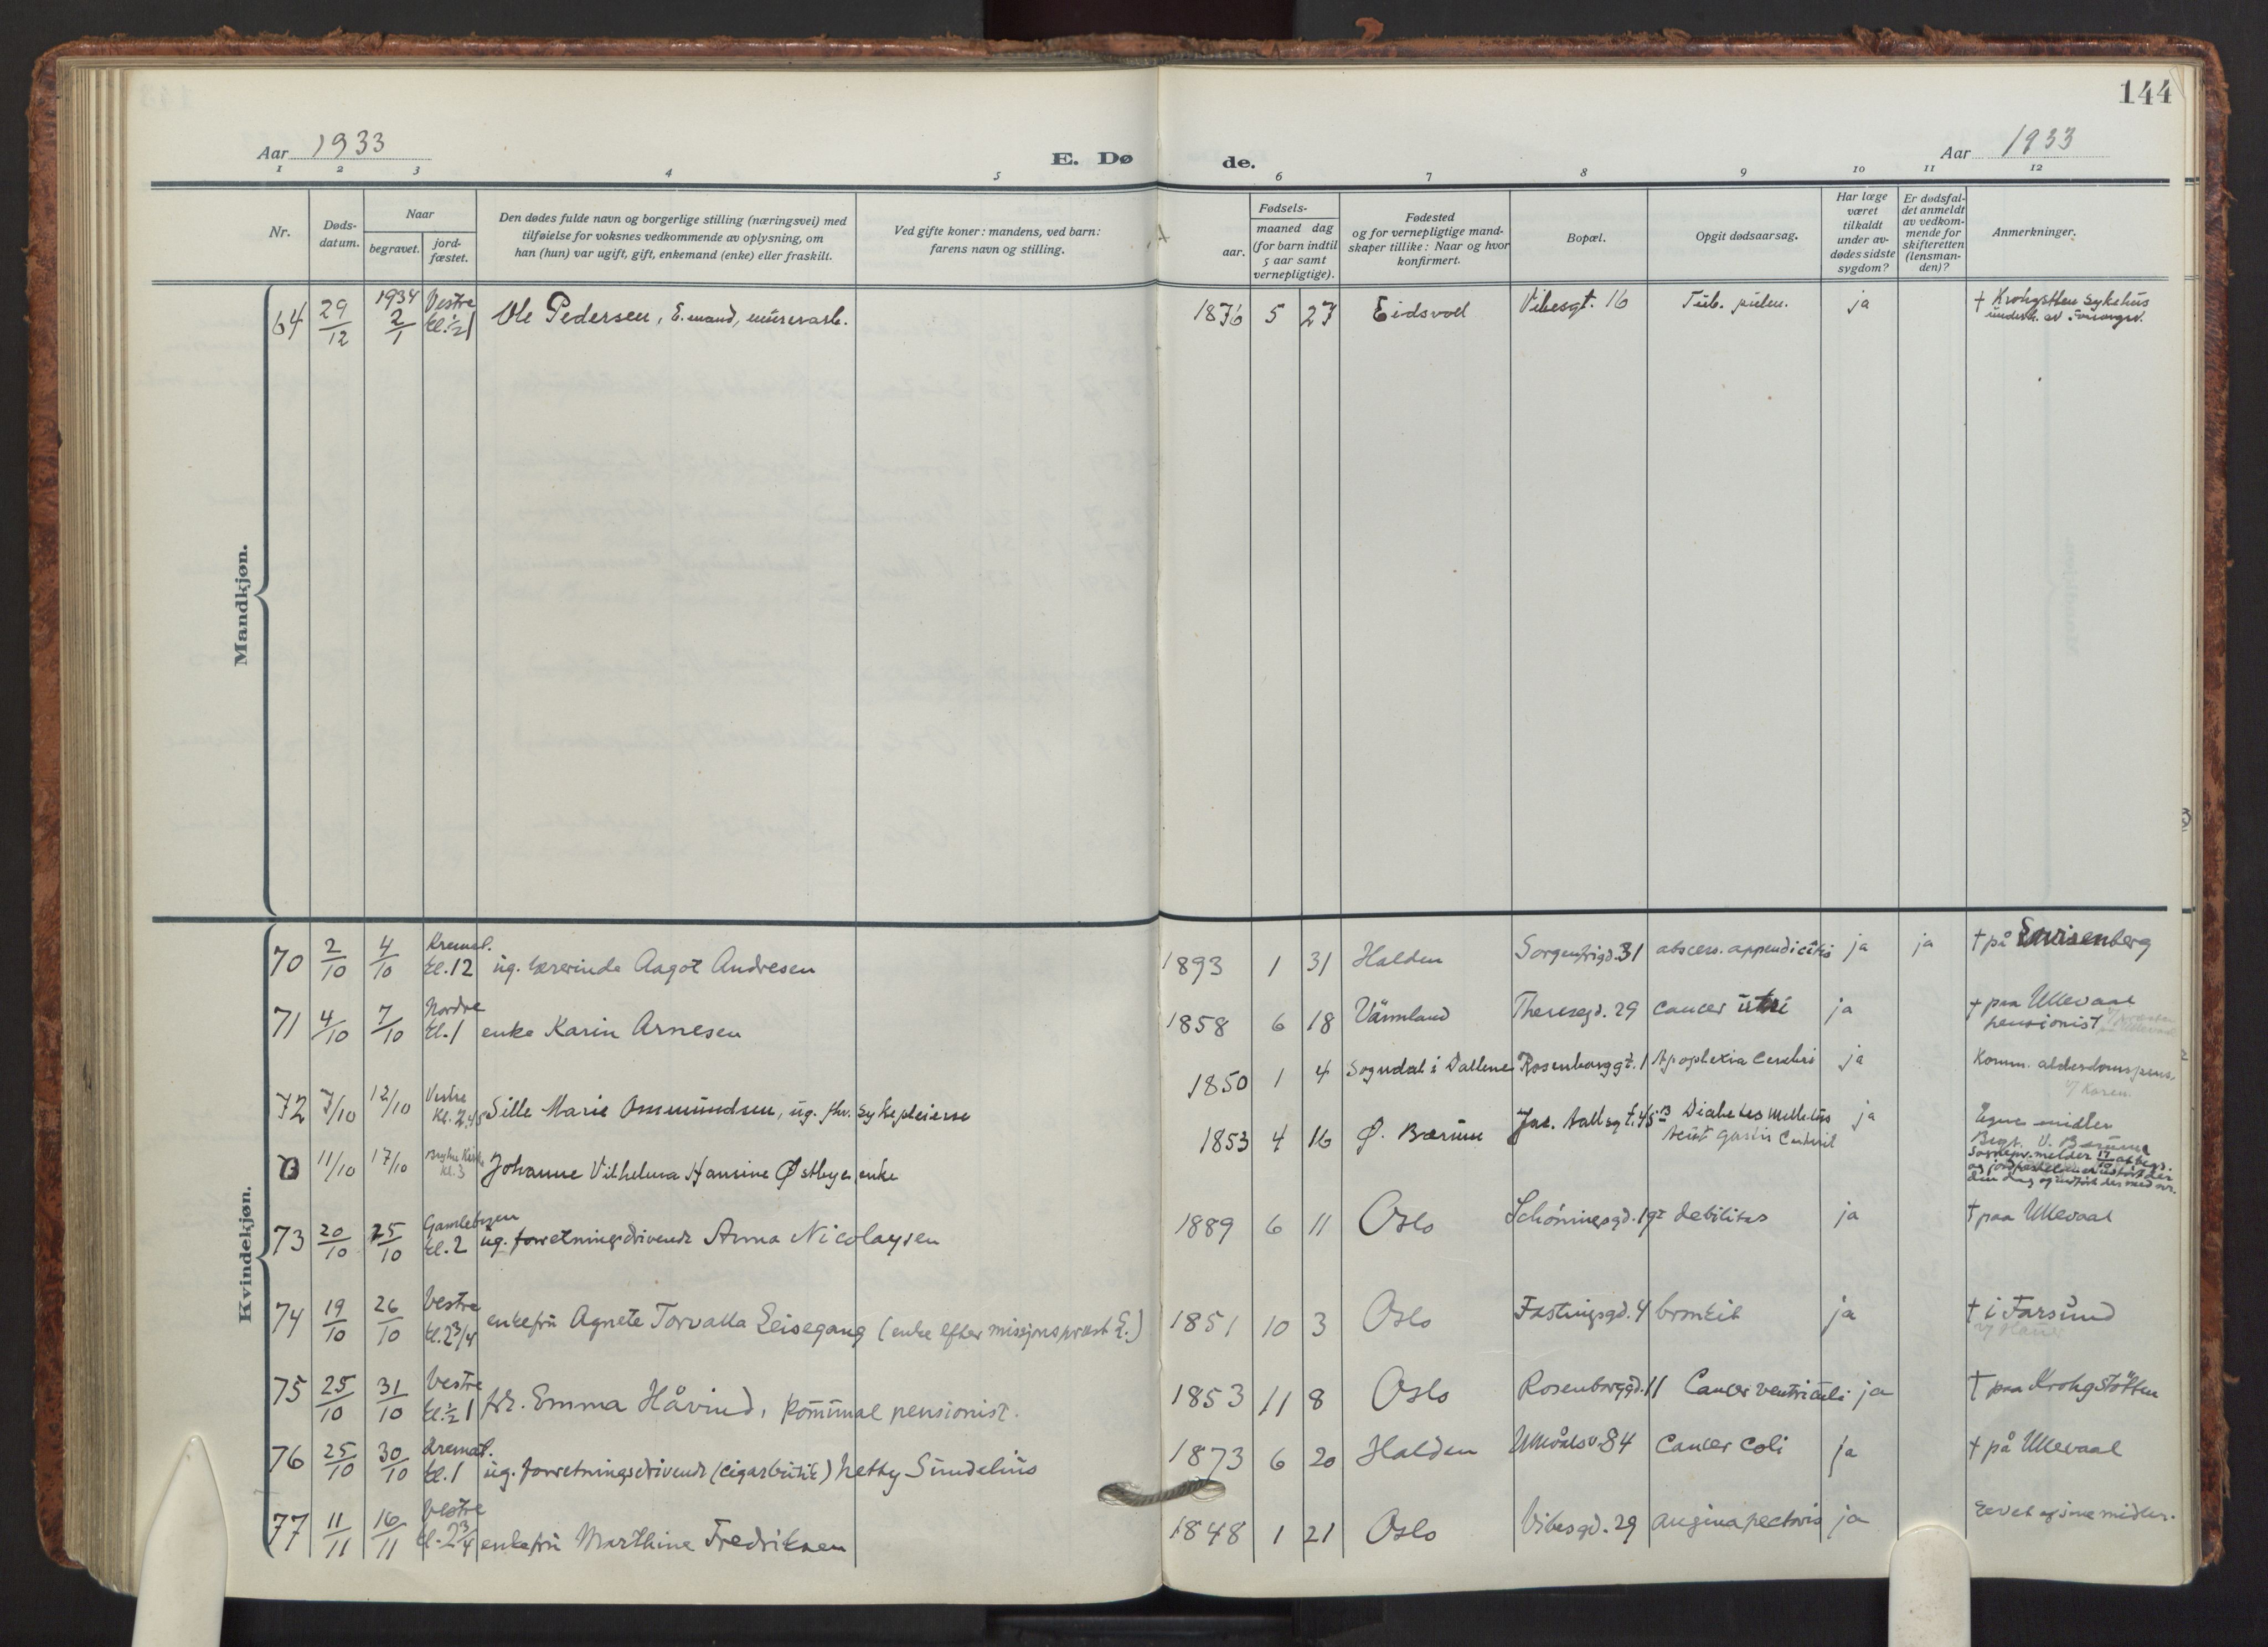 144
Aar 1933
E. Dø
de.
Aar 1933
1 2 3 4 5 6 7 8 9 10 11 12
Nr.
Døds-
datum.
Naar
begravet.
jord-
fæstet.
Den dødes fulde navn og borgerlige stilling (næringsvei) med
tilføielse for voksnes vedkommende av oplysning, om
han (hun) var ugift, gift, enkemand (enke) eller fraskilt.
Ved gifte koner: mandens, ved barn:
farens navn og stilling.
Fødsels-
aar.
maaned dag
(for barn indtil
5 aar samt
vernepligtige).
Fødested
og for vernepligtige mand-
skaper tillike: Naar og hvor
konfirmert.
Bopæl.
Opgit dødsaarsag.
Har læge
været
tilkaldt
under av-
dødes sidste
sygdom?
Er dødsfal-
det anmeldt
av vedkom-
mende for
skifteretten
(lensman-
den)?
Anmerkninger.
Mandkjøn.
64 29/12 1934 2/1 Vestre kl. ½1 Ole Pedersen, E.mand, murerarb. 1876 5 27 Eidsvol Vibesgt. 16 Tub. pulm. ja † Krohgstten sykehus
Kvindekjøn.
70 2/10 4/10 Kremat. kl. 12 ug. lærerinde Aagot Andresen 1893 1 31 Halden Sorgenfrigd. 31 abscess. appendicitis ja ja † på Lovisenberg
71 4/10 7/10 Nordre kl. 1 enke Karin Arnesen 1858 6 18 Värmland Theresegd. 29 cancer uteri ja † paa Ullevaal
pensionist
72 7/10 12/10 Vestre Kl. 2.45 Sille Marie Ommundsen, ug. fhv. sykepleierse 1850 1 4 Sogndal i Dallene Rosenborggt. 1 Apoplexia Cerebri ja Komm. alderdomspens.
B 11/10 17/10 Kl. 3 Johanne Vilhelma Hansine Østbye enke 1853 4 16 Ø. Bærum Jac. Aallsgt. 45 B Diabetes mellitus
ja Egne midler
Begr. V. Bærum
73 20/10 25/10 Gamlebyen kl. 2 ug. forretningsdrivende Anna Nicolaysen 1889 6 11 Oslo Schøningsgd. debilitas ja † paa Ullevaal
74 19/10 26/10 Vestre kl. 2 3/4 enkefru Agnete Torvalla Leisegang (enke efter misjonsprest L.) 1851 10 3 Oslo Fastingsgd. 4 bronkit ja † i Farsund
75 25/10 31/10 Vestre kl. ½1 frk. Emma Håvind, kommunal pensionist. 1853 11 8 Oslo Rosenborggd. 11 Cancer ventriculi ja † paa Krohgstøtten
76 25/10 30/10 Kremat. kl. 1 ug. forretningsdrivende (cigarbutik) Netty Sundelius 1873 6 20 Halden Ullevålsv. 84 Cancer coli ja † på Ullevaal
77 11/11 16/11 Vestre kl. 2 3/4 enkefru Marthine Fredriksen 1848 1 21 Oslo Vibesgd. 29 angina pectoris ja Levet af sine midler.